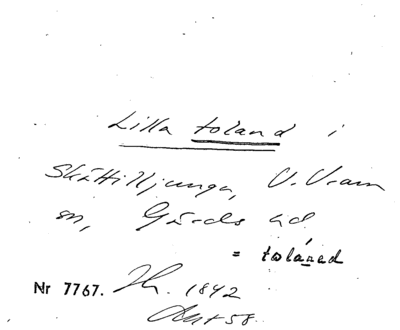 Lilla toland i
Skättilljunga, V. Vram
sn, Gärds hd
= tolåred
Nr 7767. 1842